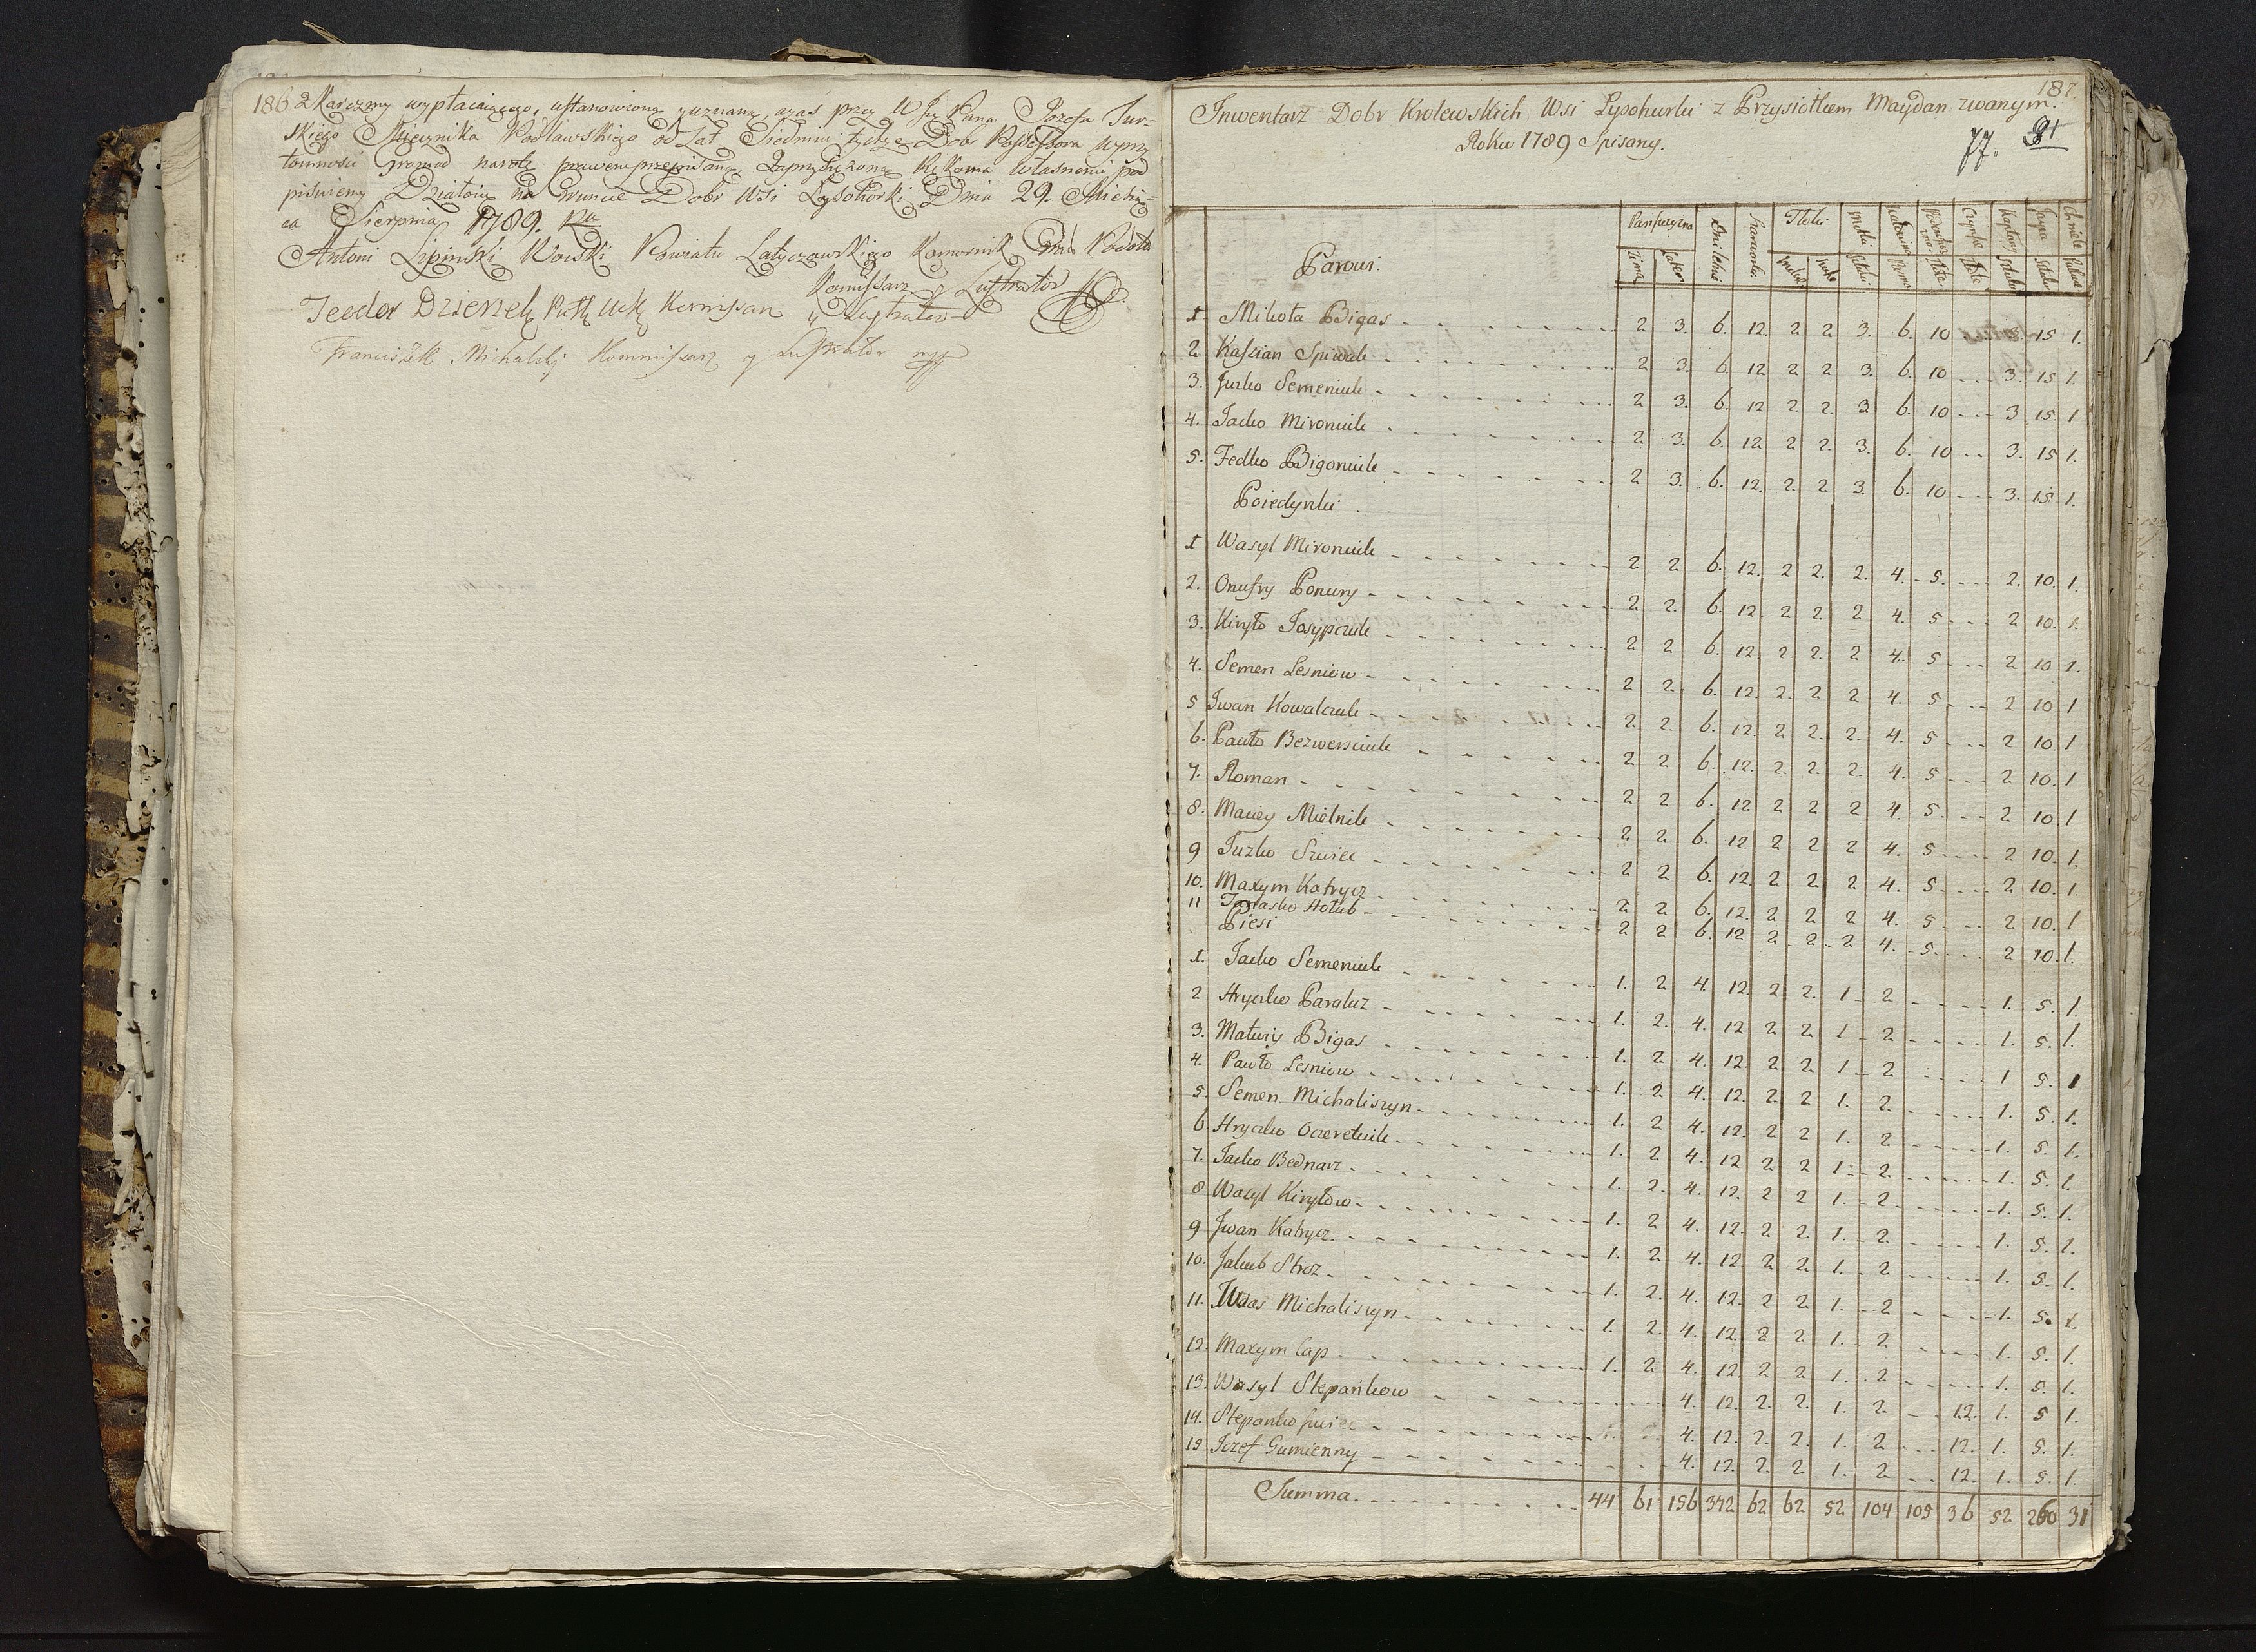 186 z Karczmy wypłacaiącego, ustanowioną y uznaną, przez W Jmć Pana Jozefa Tur-
skiego Miecznika Podlawskiego od Lat Siedmiu tychże Dobr Possessora w przy
tomności gromad prawem przepisaną Zaprzysiężoną Rękoma Własnemi pod
pisuiemy Działo się na Gruncie Dobr Wsi Lysohorki Dnia 29. Miesią-
ca Sierpnia 1789. Ru
Antoni Lipinski Woyski Powiatu Latyczowskiego Komornik Podol
Komissarz y Lustrator
Teodor Dzierzek Komissarz y Lustrator
Franciszek Michalski Kommissarz y Lustrator mp
187.
Inwentarz Dobr Krolewskich Wsi Lysohurki z Przysiołkiem Maydan zwanym.
Roku 1789 Spisany.
77. 81
Parowi. Panszczyzna Zima Lato Dni letnie Szarwarki Tłoki Motki Sztuki Kapłony Sztuki Jayca Sztuki Chmielu
1 Mikoła Bigas 2 3. 6. 12. 2 2 3. 6. 10 3. 15 1.
2 Kassian Spiwak 2 3. 6. 12 2 2 3. 6. 10 3. 15 1.
3. Jurko Semeniuk 2 3. 6. 12 2. 2. 3 6. 10 3 15. 1
4. Jacko Mironiuk 2 3. 6. 12 2 2. 3. 6. 10 3. 15 1.
5. Fedko Bigoniuk 2 3. 6. 12. 2. 2 3 6. 10 3. 15. 1.
Poiedynki
1 Wasyl Mironiuk 2 2 6. 12. 2 2. 2. 4. 5. 2. 10. 1.
2. Onufry Ponury 2 2. 6. 12 2 2. 2 4. 5 2 10. 1.
3. Kiryło Josypczuk 2 2 6. 12 2. 2. 2 4. 5 2 10 1.
4. Semen Lesniow 2 2. 6. 12 2. 2 2 4. 5 2 10 1
5 Iwan Kowalczuk 2 2. 6. 12. 2 2. 2. 4. 5 2 10. 1
6. Pawło Bezwersiuk 2 2 6. 12. 2. 2. 2. 4. 5 2 10. 1
7. Roman 2 2 6. 12 2 2 2 4. 5. 2 10. 1
8. Maciey Mielnik 2 2 6. 12 2 2 2 4. 5 2 10. 1.
9 Juzko Szwiec 2 2 6. 12. 2 2 2 4. 5. 2 10. 1.
10. Maxym Katrycz 2 2 6. 12. 2 2 2 4. 5 2 10. 1
11 Tarasko Hołub 2 2 6. 12 2 2 2 4. 5. 2 10. 1.
Piesi
1. Jacko Semeniuk 1. 2 4. 12 2 2. 1 2 1. 5. 1.
2 Hrycko Paraluz 1. 2. 4. 12 2 2 1 2 1. 5. 1.
3. Matwiy Bigas 1. 2 4. 12. 2 2 1 2 1 5. 1
4. Pawło Lesniow 1. 2. 4. 12. 2. 2 1. 2. 1. 5. 1.
5. Semen Michaliszyn 1. 2 4. 12. 2 2 1. 2 1. 5. 1.
6. Hrycko Oczeretiuk 1. 2 4. 12 2 2 1. 2. 1. 5. 1.
7. Jacko Bednarz 1. 2. 4. 12. 2 2 1. 2 1. 5. 1.
8 Wasyl Kiryłow 1. 2 4. 12. 2 2. 1. 2. 1. 5. 1.
9 Iwan Katrycz 1. 2 4. 12. 2 2 1. 2 1. 5. 1.
10. Jakub Stroz 1. 2. 4. 12. 2 2 1. 2 1. 5. 1.
11. Michaliszyn 1. 2. 4. 12. 2 2 1. 2 1. 5. 1.
12. Maxym Cap 1. 2 4. 12. 2 2 1. 2 1. 5. 1.
13. Wasyl Stepańkow 4. 12. 2. 2. 1. 2. 12. 1. 5 1.
14. Stepanko Szwiec 4. 12. 2. 2. 1. 2 12. 1. 5. 1.
15 Jozef Gumienny 4. 12. 2. 2. 1. 2 12. 1. 5. 1.
Summa 44 61 156 372 62 62 52 104 105 36 52 260 31